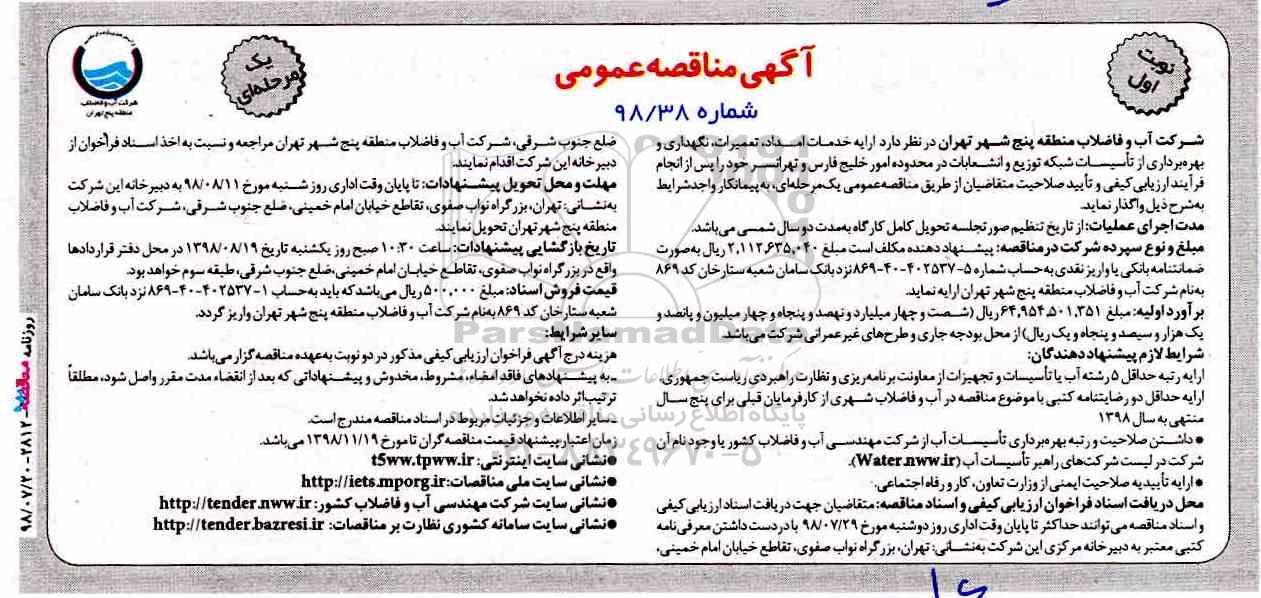 آگهی مناقصه عمومی
شماره ۹۸/۳۸
نوبت
اول
یک
مرحله‌ای
شرکت آب و فاضلاب
منطقه پنج تهران
شرکت آب و فاضلاب منطقه پنج شهر تهران در نظر دارد ارایه خدمات امداد، تعمیرات، نگهداری و
بهره‌برداری از تأسیسات شبکه توزیع و انشعابات در محدوده امور خلیج فارس و تهرانسر خود را پس از انجام
فرآیند ارزیابی کیفی و تأیید صلاحیت متقاضیان از طریق مناقصه عمومی یک مرحله‌ای، به پیمانکار واجد شرایط
به شرح ذیل واگذار نماید.
مدت اجرای عملیات: از تاریخ تنظیم صورتجلسه تحویل کامل کارگاه به‌مدت دو سال شمسی می‌باشد.
مبلغ و نوع سپرده شرکت در مناقصه: پیشنهاد دهنده مکلف است مبلغ ۲,۱۱۲,۶۳۵,۰۴۰ ریال به‌صورت
ضمانتنامه بانکی یا واریز نقدی به حساب شماره ۵-۴۰۲۵۳۷-۴۰-۸۶۹ نزد بانک سامان شعبه ستارخان کد ۸۶۹
به‌نام شرکت آب و فاضلاب منطقه پنج شهر تهران ارایه نماید.
برآورد اولیه: مبلغ ۶۴,۹۵۴,۵۰۱,۳۵۱ ریال (شصت و چهار میلیارد و نهصد و پنجاه و چهار میلیون و پانصد و
یک هزار و سیصد و پنجاه و یک ریال) از محل بودجه جاری و طرح‌های غیر عمرانی شرکت می‌باشد.
شرایط لازم پیشنهاد دهندگان:
ارایه رتبه حداقل ۵ رشته آب یا تأسیسات و تجهیزات از معاونت برنامه‌ریزی و نظارت راهبردی ریاست جمهوری.
ارایه حداقل دو رضایتنامه کتبی با موضوع مناقصه در آب و فاضلاب شهری از کارفرمایان قبلی برای پنج سال
منتهی به سال ۱۳۹۸
● داشتن صلاحیت و رتبه بهره‌برداری تأسیسات آب از شرکت مهندسی آب و فاضلاب کشور یا وجود نام آن
شرکت در لیست شرکت‌های راهبر تأسیسات آب (Water.nww.ir).
● ارایه تأییدیه صلاحیت ایمنی از وزارت تعاون، کار و رفاه اجتماعی.
محل دریافت اسناد فراخوان ارزیابی کیفی و اسناد مناقصه: متقاضیان جهت دریافت اسناد ارزیابی کیفی
و اسناد مناقصه می‌توانند حداکثر تا پایان وقت اداری روز دوشنبه مورخ ۹۸/۰۷/۲۹ با در دست داشتن معرفی‌نامه
کتبی معتبر به دبیرخانه مرکزی این شرکت به‌نشانی: تهران، بزرگراه نواب صفوی، تقاطع خیابان امام خمینی،
ضلع جنوب شرقی، شرکت آب و فاضلاب منطقه پنج شهر تهران مراجعه و نسبت به اخذ اسناد فراخوان از
دبیرخانه این شرکت اقدام نمایند.
مهلت و محل تحویل پیشنهادات: تا پایان وقت اداری روز شنبه مورخ ۹۸/۰۸/۱۱ به دبیرخانه این شرکت
به‌نشانی: تهران، بزرگراه نواب صفوی، تقاطع خیابان امام خمینی، ضلع جنوب شرقی، شرکت آب و فاضلاب
منطقه پنج شهر تهران تحویل نمایند.
تاریخ بازگشایی پیشنهادات: ساعت ۱۰:۳۰ صبح روز یکشنبه تاریخ ۱۳۹۸/۰۸/۱۹ در محل دفتر قراردادها
واقع در بزرگراه نواب صفوی، تقاطع خیابان امام خمینی، ضلع جنوب شرقی، طبقه سوم خواهد بود.
قیمت فروش اسناد: مبلغ ۵۰۰,۰۰۰ ریال می‌باشد که باید به حساب ۱-۴۰۲۵۳۷-۴۰-۸۶۹ نزد بانک سامان
شعبه ستارخان کد ۸۶۹ به‌نام شرکت آب و فاضلاب منطقه پنج شهر تهران واریز گردد.
سایر شرایط:
هزینه درج آگهی فراخوان ارزیابی کیفی مذکور در دو نوبت به‌عهده مناقصه‌گزار می‌باشد.
ـ به پیشنهادهای فاقد امضاء، مشروط، مخدوش و پیشنهاداتی که بعد از انقضاء مدت مقرر واصل شود، مطلقاً
ترتیب‌اثر داده نخواهد شد.
ـ سایر اطلاعات و جزئیات مربوط در اسناد مناقصه مندرج است.
زمان اعتبار پیشنهاد قیمت مناقصه‌گران تا مورخ ۱۳۹۸/۱۱/۱۹ می‌باشد.
● نشانی سایت اینترنتی: t5ww.tpww.ir
● نشانی سایت ملی مناقصات: http://iets.mporg.ir
● نشانی سایت شرکت مهندسی آب و فاضلاب کشور: http://tender.nww.ir
● نشانی سایت سامانه کشوری نظارت بر مناقصات: http://tender.bazresi.ir
روزنامه مناقصه - ۲۸۱۲ - ۹۸/۰۷/۲۰
ParsNamadData
پایگاه اطلاع رسانی مناقصه و مزایده
۰۲۱-۸۸۳۴۹۶۷۰-۵